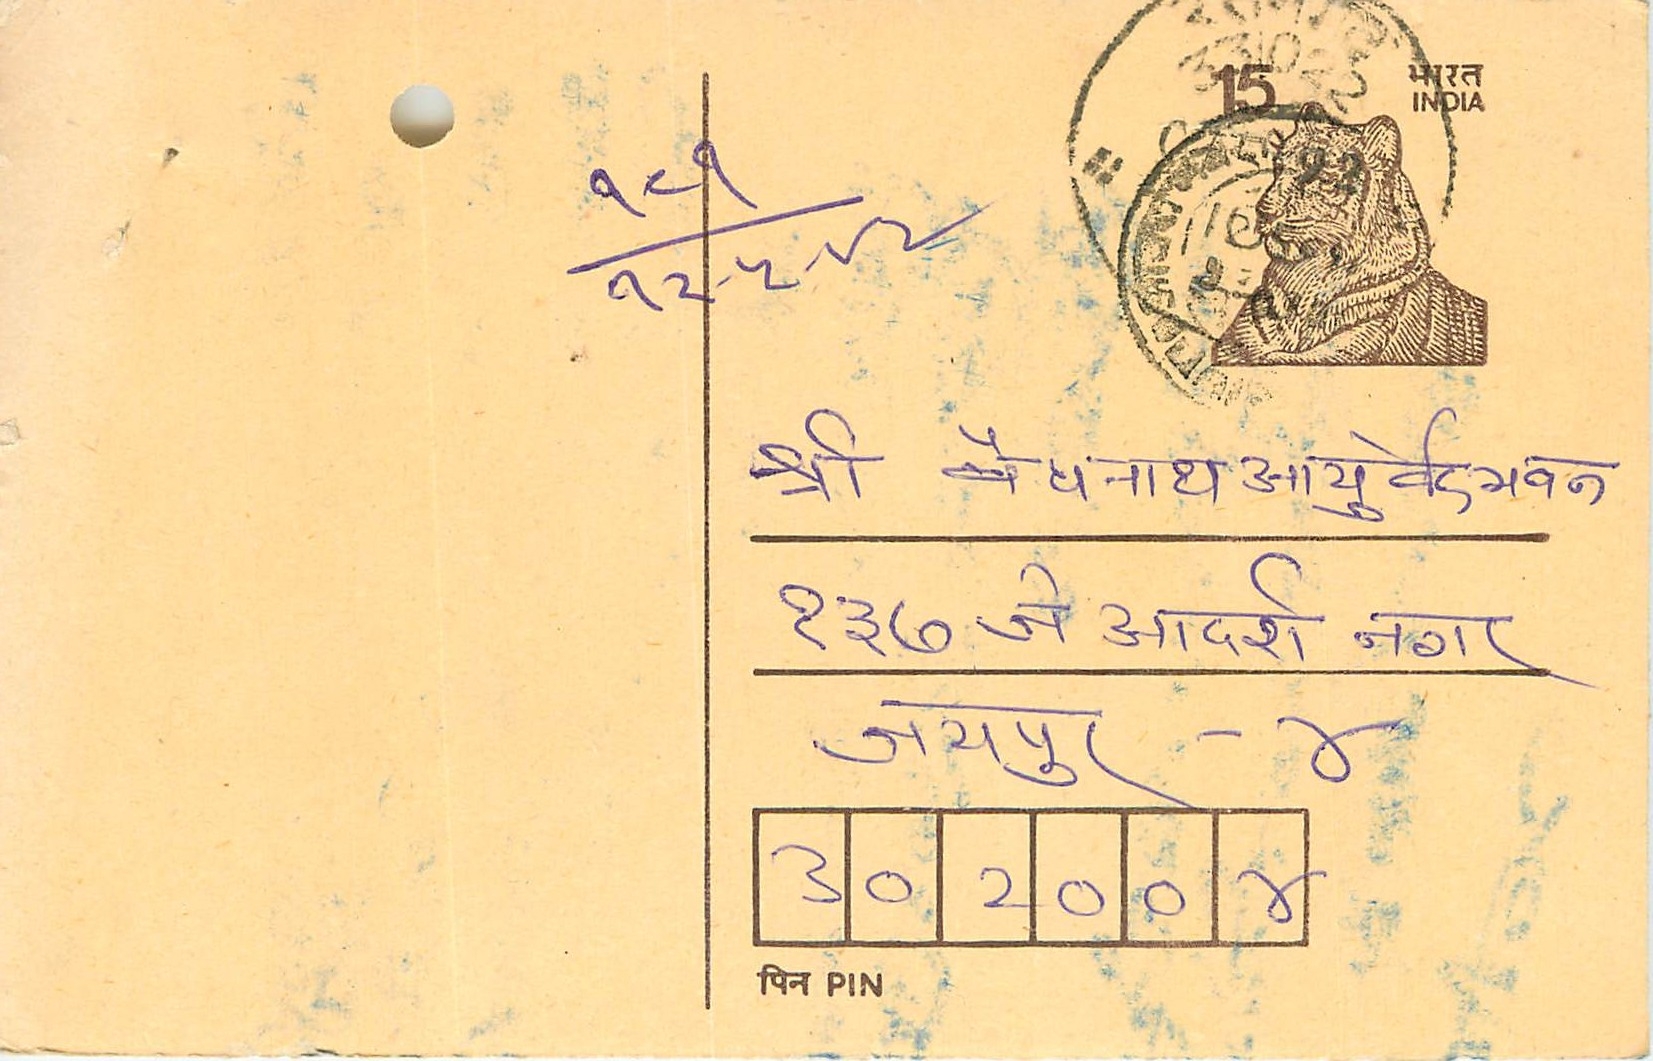 15
भारत
INDIA
१८१
१२-५-८२
श्री बैधनाथ आयुर्वेद भवन
१३७ जे आदर्श नगर
जयपुर - ४
302004
पिन PIN